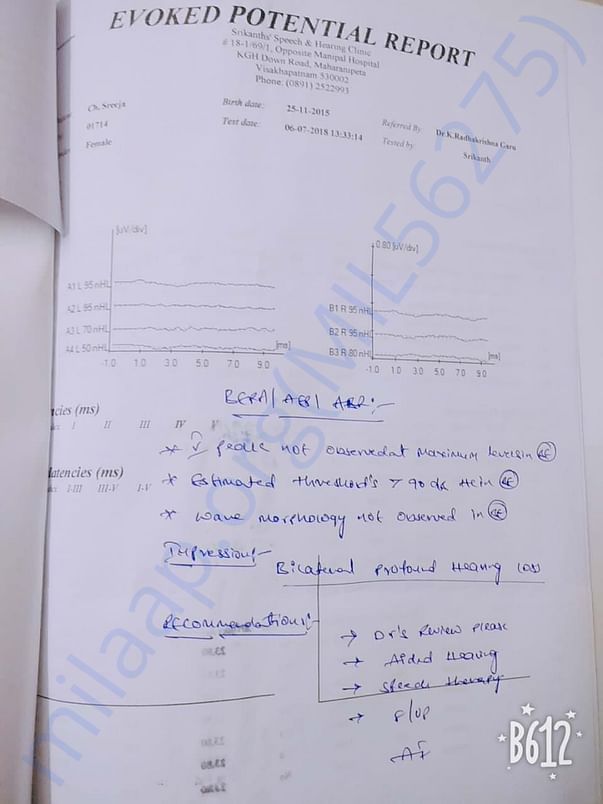 EVOKED POTENTIAL REPORT
Srikanths' Speech & Hearing Clinic
# 18-1/69/1, Opposite Manipal Hospital
KGH Down Road, Maharanipeta
Visakhapatnam 530002
Phone: (0891) 2522993
Ch. Sreeja Birth date: 25-11-2015 Referred By Dr.K.Radhakrishna Garu
01714 Test date: 06-07-2018 13:33:14 Tested by Srikanth
Female
[uV/div] 0.80 [uV/div]
A1 L 95 nHL
A2 L 95 nHL
A3 L 70 nHL
A4 L 50 nHL
[ms]
-1.0 1.0 3.0 5.0 7.0 9.0
B1 R 95 nHL
B2 R 95 nHL
B3 R 80 nHL
[ms]
-1.0 1.0 3.0 5.0 7.0 9.0
BERA/ AEP/ ABR:-
ncies (ms)
I II III IV V
* V peak not observed at maximum levels in
latencies (ms)
I-III III-V I-V
* Estimated threshold's > 90 dB HL in
* wave morphology not observed in
Impression:-
Bilateral profound Hearing loss
Recommendations:-
→ Dr's Review please
→ Aided Hearing
→ Speech therapy
→ F/up
milaap.org(MIL56275)
B612